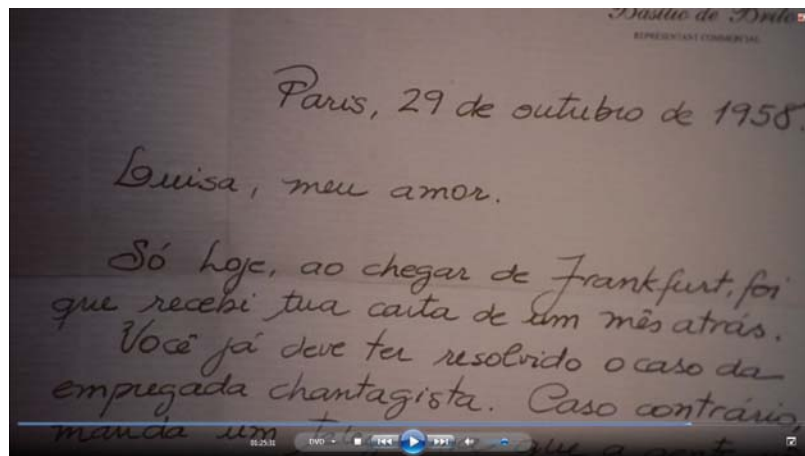 Basilio de Brito
REPRESENTANT COMMERCIAL
Paris, 29 de outubro de 1958.
Luisa, meu amor.
Só hoje, ao chegar de Frankfurt, foi
que recebi tua carta de um mês atrás.
Você já deve ter resolvido o caso da
empregada chantagista. Caso contrário,
manda um que a gente
01:25:31 DVD